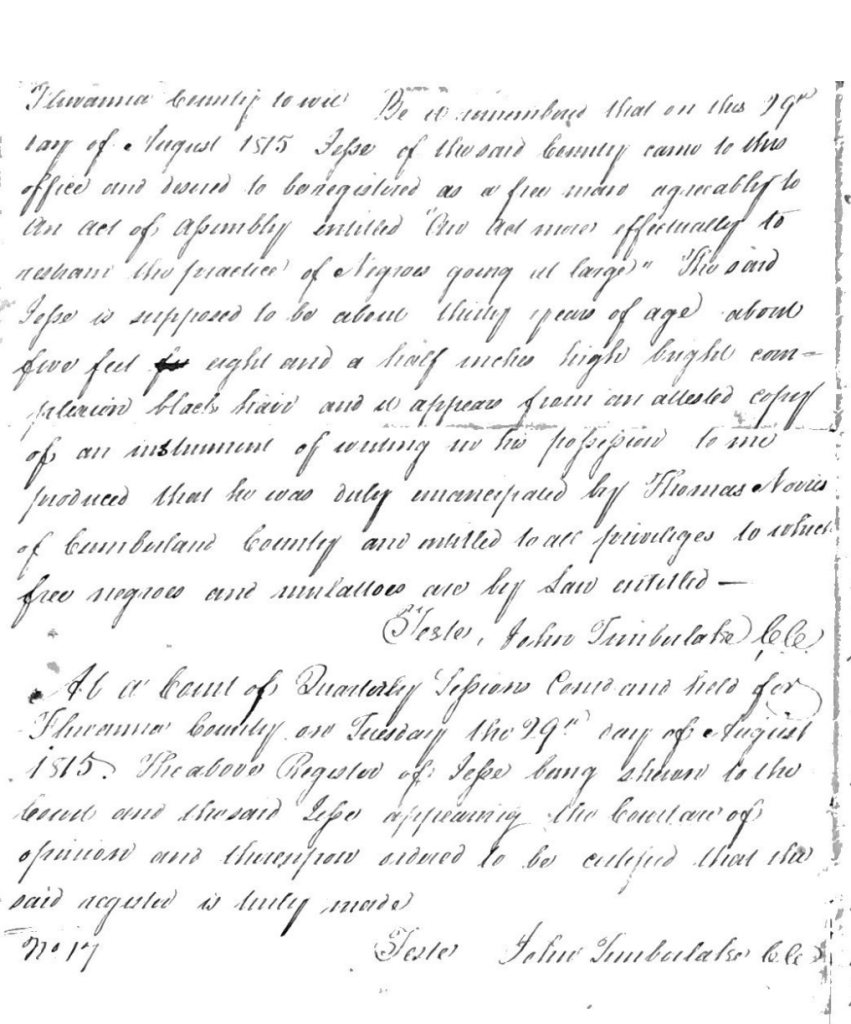 Fluvanna County to wit Be it remembered that on this 29th
day of August 1815 Jesse of the said County came to this
office and desired to be registered as a free man agreeably to
An act of Assembly entitled "An Act more effectually to
restrain the practice of Negroes going at large" The said
Jesse is supposed to be about thirty years of age about
five feet eight and a half inches high bright com=
plexion black hair and it appears from an attested copy
of an instrument of writing in his possession to me
produced that he was duly emancipated by Thomas
of Cumberland County and entitled to all priviliges to which
free negroes and mulattoes are by Law entitled —
Teste, John Timberlake C.C.
At a Court of Quarterly Sessions Contd and held for
Fluvanna County on Tuesday the 29th day of August
1815. The above Register of Jesse being shewn to the
Court and the said Jesse appearing the Court are of
opinion and thereupon ordered to be certified that the
said register is truly made
No 17 Teste John Timberlake CC